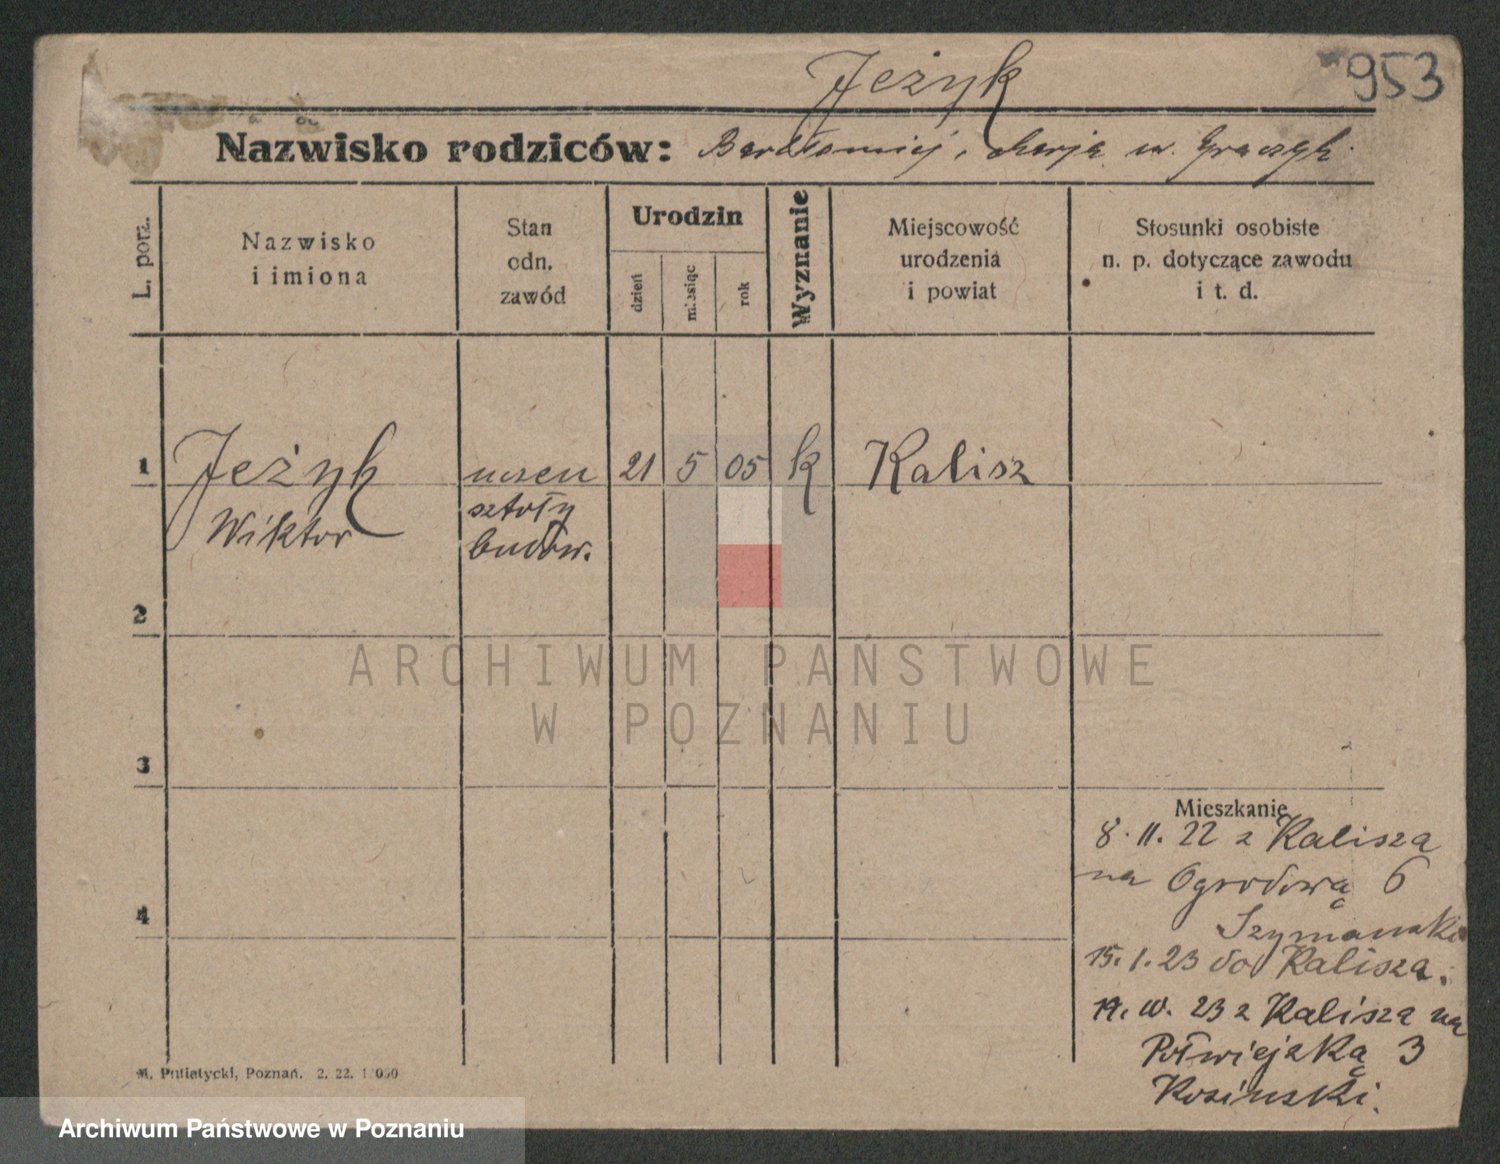 Jeżyk 953
Nazwisko rodziców: Bartłomiej, Marja u. Graczyk.
L. porz.
Nazwisko
i imiona
Stan
odn.
zawód
Urodzin
dzień
miesiąc
rok
Wyznanie
Miejscowość
urodzenia
i powiat
Stosunki osobiste
n. p. dotyczące zawodu
i t. d.
1 Jeżyk uczeń 21 5 05 k Kalisz
Wiktor szkoły
budow.
2
ARCHIWUM PAŃSTWOWE
W POZNANIU
3
Mieszkanie
8. 11. 22 z Kalisza
na Ogrodową 6
Szymański
15. 1. 23 do Kalisza.
z Kalisza na
Półwiejską 3
Kosiński.
4
M. Putiatycki, Poznań. 2. 22.
Archiwum Państwowe w Poznaniu